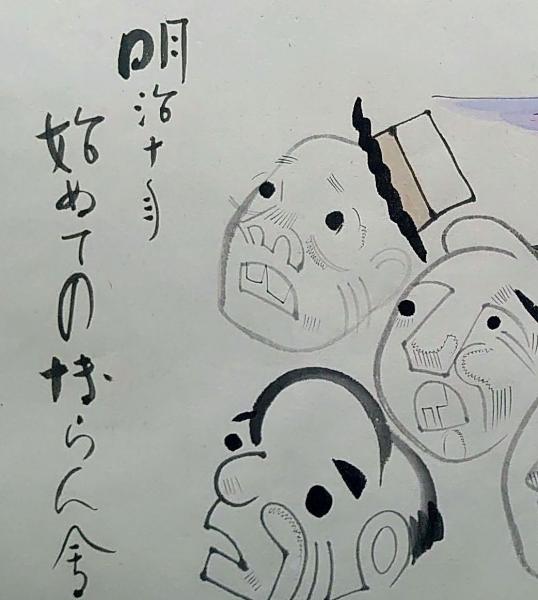 明治十年
始めての博らん会